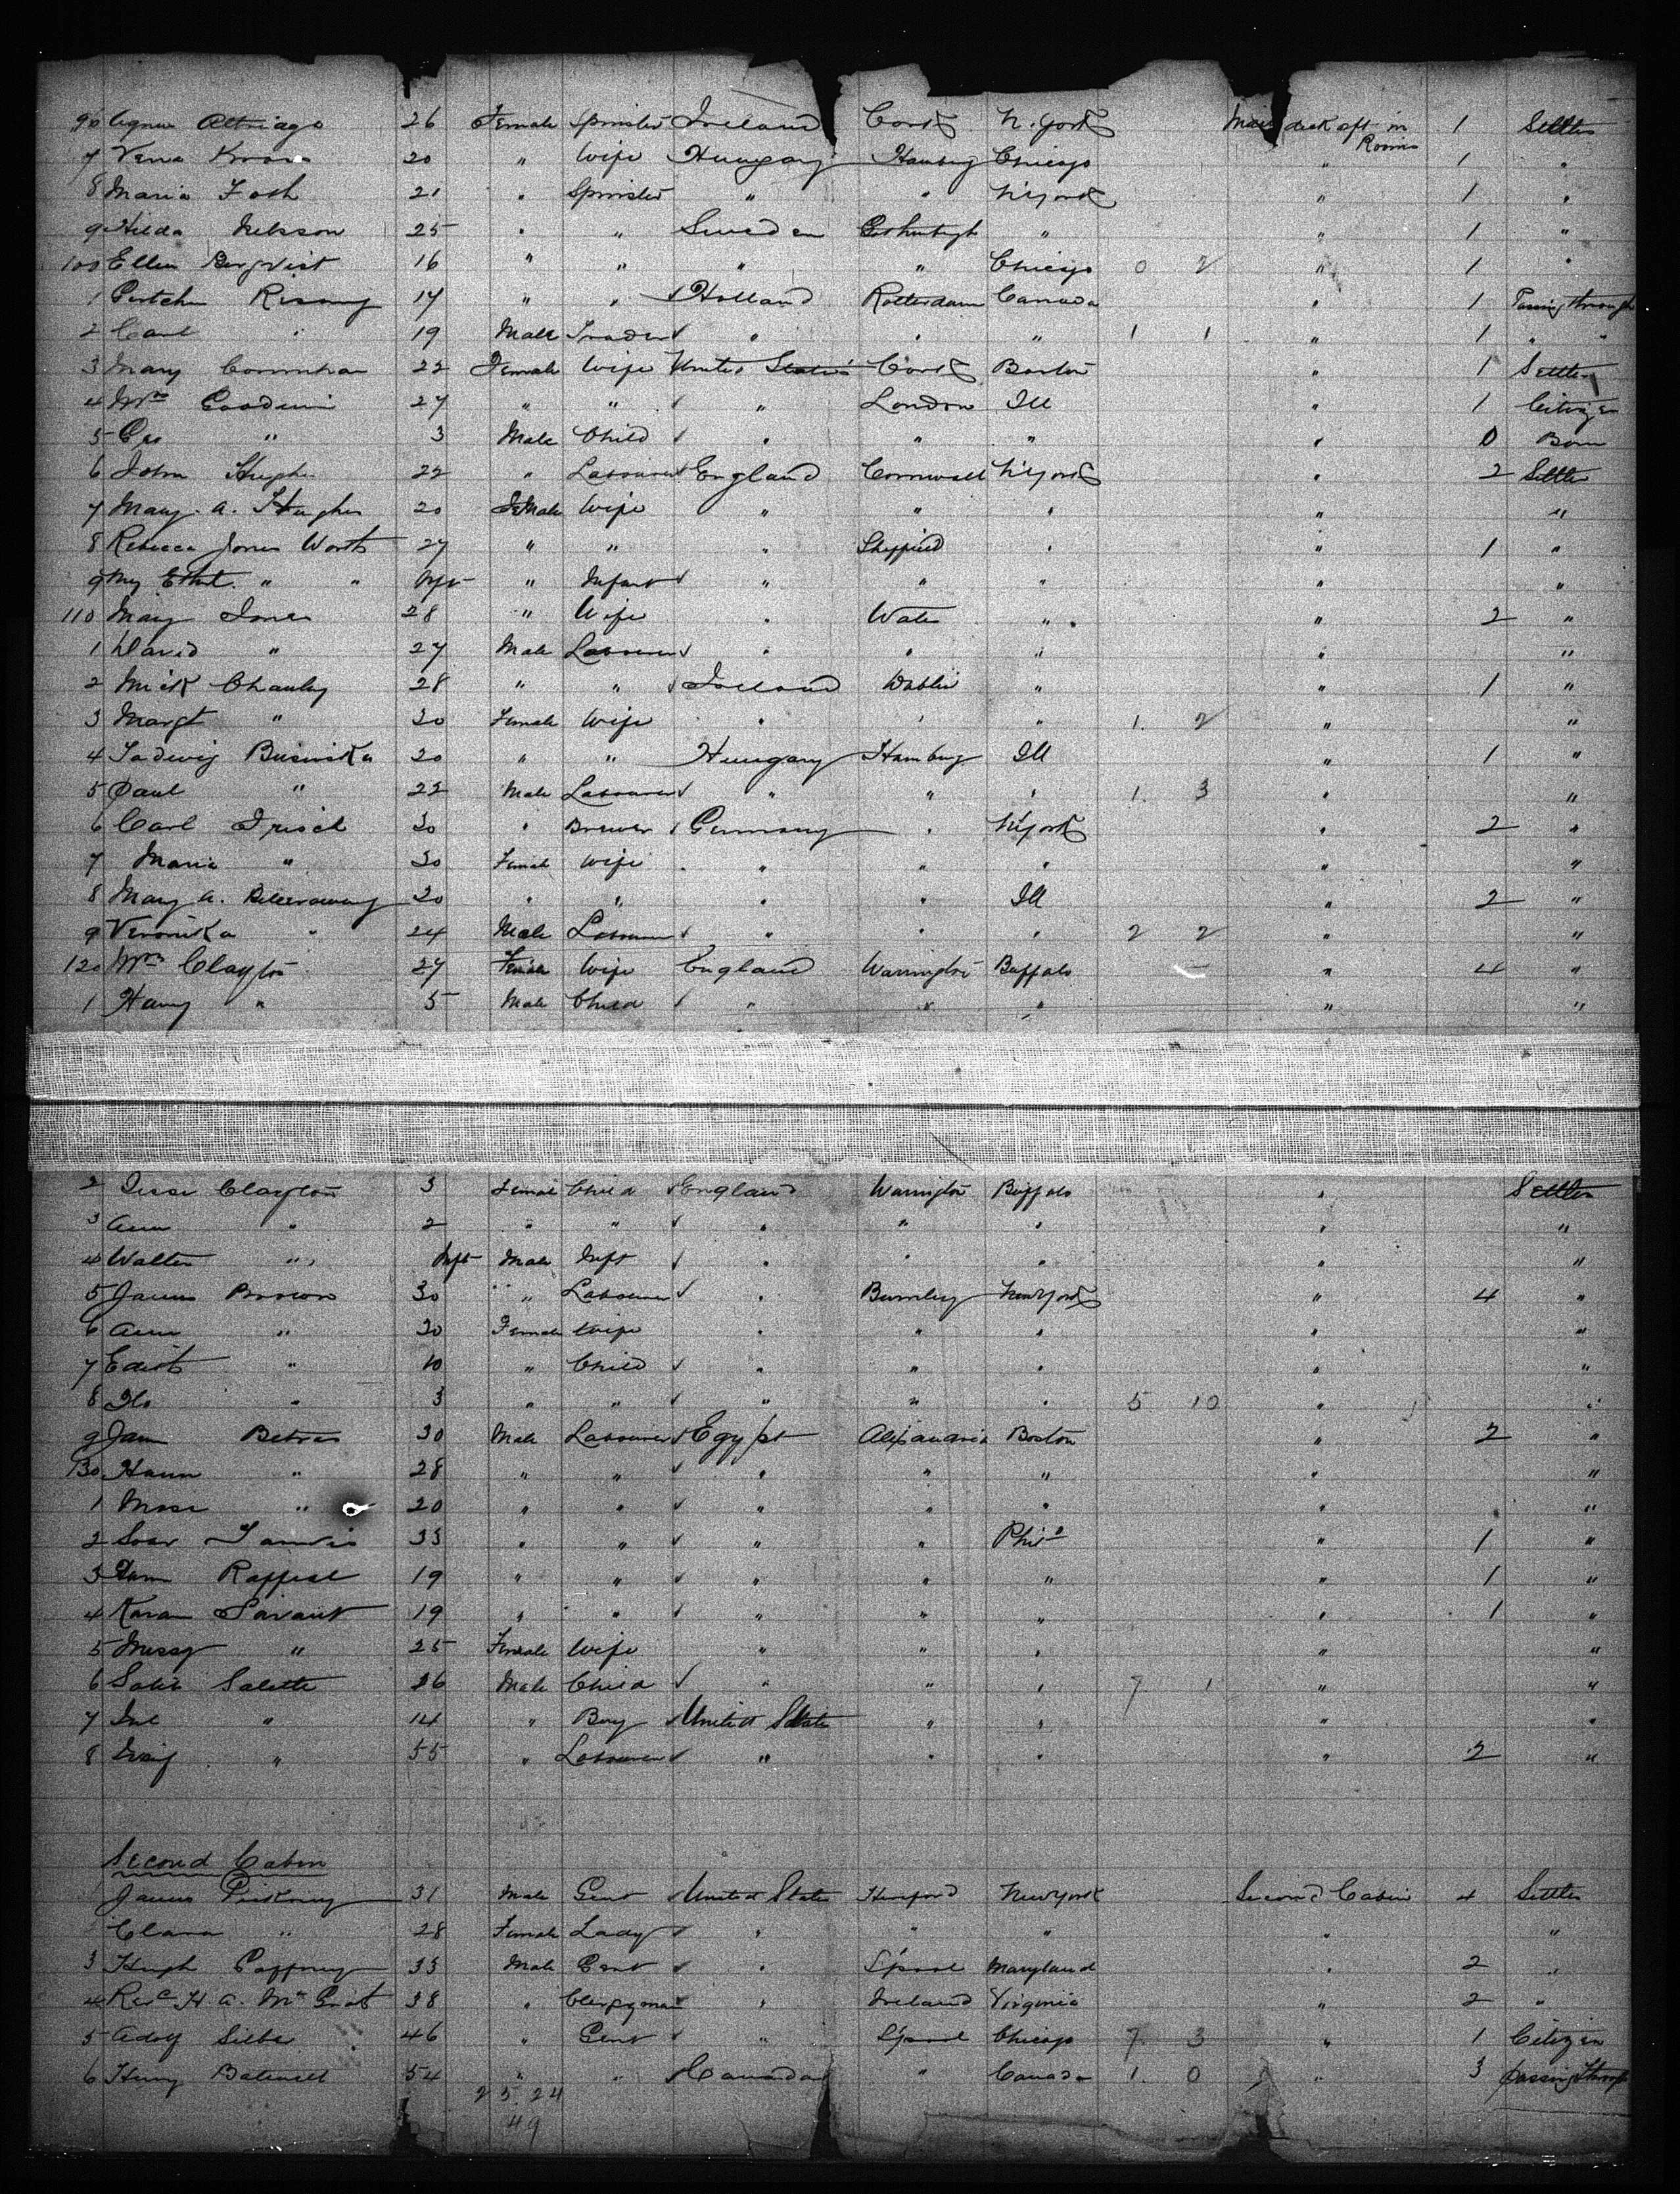 96 Agnes 26 Female Spinster Ireland Cork N. York Main deck aft in Rooms 1 Settler
7 Vena 20 " Wife Hungary Hamburg Chicago " 1 "
8 Maria 21 " Spinster " " N York " 1 "
9 Hilda Nelsson 25 " " Sweden Gothenburgh " " 1 "
100 Ellen Bergvist 16 " " " " Chicago 0 2 " 1 "
1 17 " " Holland Rotterdam Canada " 1 Passing through
2 Carl " 19 Male Trader " " " 1 1 " 1 " "
3 Mary 22 Female Wife United States Cork Boston " 1 Settler
4 Mrs Goodwin 27 " " " London Ill " 1 Citizen
5 Geo " 3 Male Child " " " " 0 Born
6 John Hughes 22 " Labourer England Cornwall N York " 2 Settler
7 Mary. A. Hughes 20 Female Wife " " " " "
8 Rebecca Jones Worth 27 " " " Sheffield " " 1 "
9 My Ethel. " " Inft " Infant " " " " "
110 Mary Jones 28 " Wife " Wales " " 2 "
1 David " 27 Male Labourer " " " " "
2 Mick 28 " " Ireland Dublin " " 1 "
3 Margt " 30 Female Wife " " " 1 2 " "
4 Businska 20 " " Hungary Hamburg Ill " 1 "
5 Paul " 22 Male Labourer " " " 1 3 " "
6 Carl 30 " Brewer Germany " N York " 2 "
7 Maria " 30 Female Wife " " " " "
8 Mary A. 20 " " " " Ill " 2 "
9 Veronika " 24 Male Labourer " " " 2 2 " "
120 Mrs Clayton 27 Female Wife England Warrington Buffalo " 4 "
1 Harry " 5 Male Child " " " " "
2 Clayton 3 Female Child England Warrington Buffalo " Settler
3 Ann " 2 " " " " " " "
4 Walter " Inft Male Inft " " " " "
5 James Brown 30 " Labourer " Burnley New York " 4 "
6 Ann " 30 Female Wife " " " " "
7 Edith " 10 " Child " " " " "
8 Flo " 3 " " " " " 5 10 " "
9 30 Male Labourer Egypt Alexandria Boston " 2 "
130 " 28 " " " " " " "
1 Mose " 20 " " " " " " "
2 33 " " " " Phila " 1 "
3 19 " " " " " " 1 "
4 Karam 19 " " " " " " 1 "
5 " 25 Female Wife " " " " "
6 Salette 26 Male Child " " " 7 1 " "
7 " 14 " Boy United States " " " "
8 " 55 " Labourer " " " " 2 "
Second Cabin
1 James 31 Male Gent United States New York Second Cabin 4 Settler
Clara " 28 Female Lady " " " " "
3 Hugh 33 Male Gent " L'pool Maryland " 2 "
4 H. A. 38 " Clergyman " Ireland Virginia " 2 "
5 Adolf Silber 46 " Gent " L'pool Chicago 7 3 " 1 Citizen
6 Henry 54 " " Canada " Canada 1 0 " 3 passing through
25. 24
49